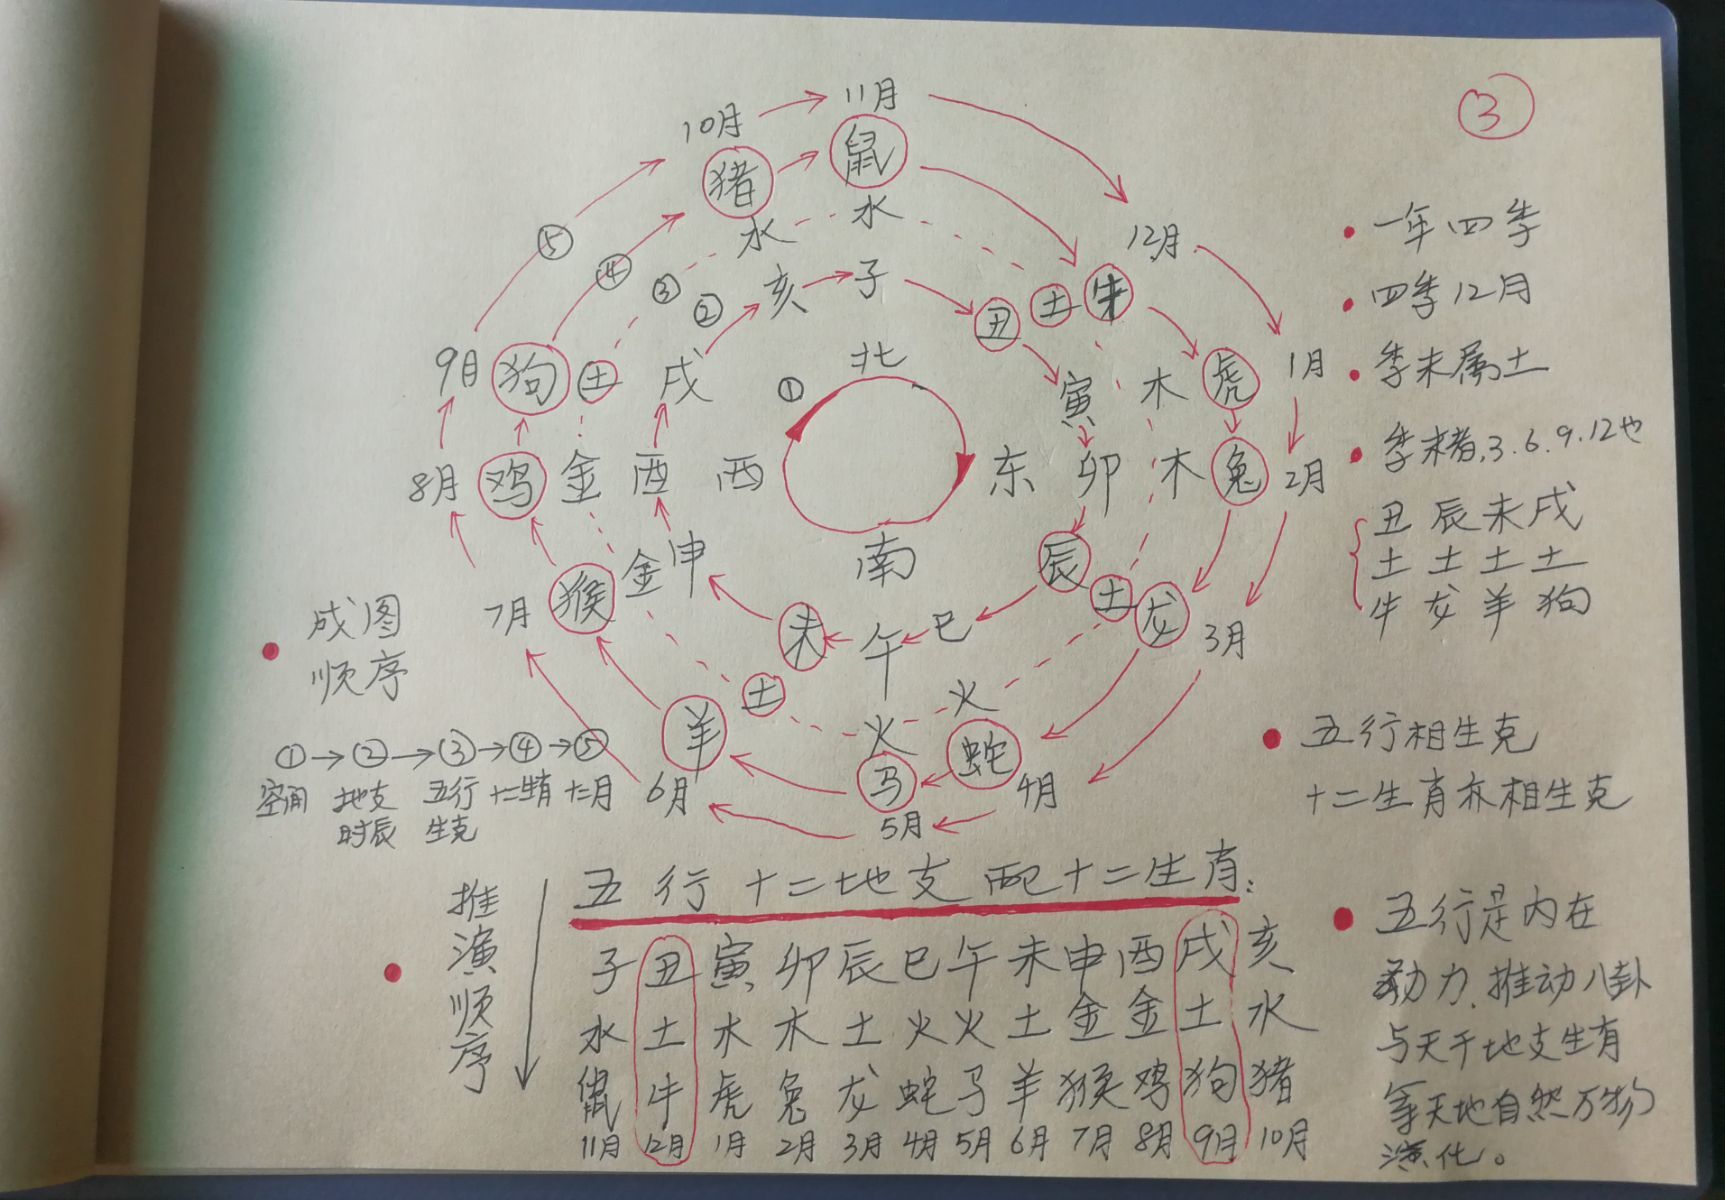 ③
10月 11月
猪 鼠
水 水
12月
⑤ ④ ③ ②
亥 子
丑 土 牛
9月 狗 土 戌 ① 北 寅 木 虎 1月
8月 鸡 金 酉 西 东 卯 木 兔 2月
7月 猴 金 申 南 辰 土 龙 3月
未 午 巳
土 火 火
羊 马 蛇
6月 5月 4月
• 一年四季
• 四季12月
• 季末属土
• 季末者,3.6.9.12也
丑 辰 未 戌
土 土 土 土
牛 龙 羊 狗
• 成图
顺序
①→②→③→④→⑤
空间 地支 五行 十二生肖 十二月
时辰 生克
• 五行相生克
十二生肖亦相生克
• 推演顺序
五行十二地支配十二生肖:
子 丑 寅 卯 辰 巳 午 未 申 酉 戌 亥
水 土 木 木 土 火 火 土 金 金 土 水
鼠 牛 虎 兔 龙 蛇 马 羊 猴 鸡 狗 猪
11月 12月 1月 2月 3月 4月 5月 6月 7月 8月 9月 10月
• 五行是内在
动力,推动八卦
与天干地支生肖
等天地自然万物
演化。